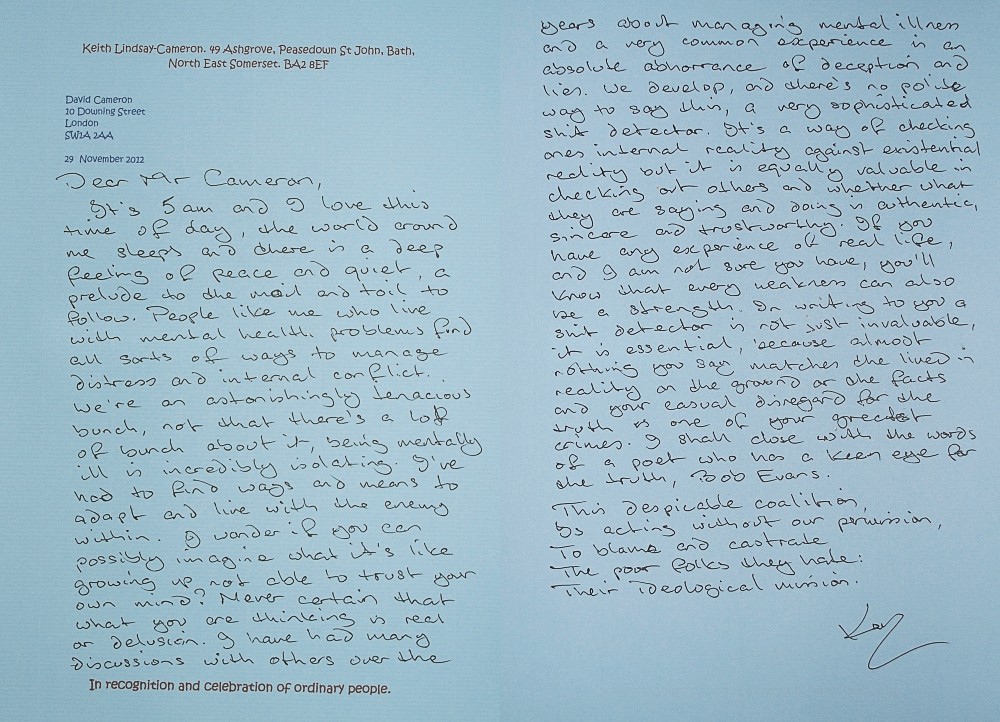 Keith Lindsay-Cameron. 49 Ashgrove, Peasedown St John, Bath,
North East Somerset. BA2 8EF
David Cameron
10 Downing Street
London
SW1A 2AA
29 November 2012
Dear Mr Cameron,
It's 5am and I love this
time of day, the world around
me sleeps and there is a deep
feeling of peace and quiet, a
prelude to the moil and toil to
follow. People like me who live
with mental health problems find
all sorts of ways to manage
distress and internal conflict.
We're an astonishingly tenacious
bunch, not that there's a lot
of bunch about it, being mentally
ill is incredibly isolating. I've
had to find ways and means to
adapt and live with the enemy
within. I wonder if you can
possibly imagine what it's like
growing up not able to trust your
own mind? Never certain that
what you are thinking is real
or delusion. I have had many
discussions with others over the
In recognition and celebration of ordinary people.
years about managing mental illness
and a very common experience is an
absolute abhorrance of deception and
lies. We develop, and there's no polite
way to say this, a very sophisticated
shit detector. It's a way of checking
ones internal reality against existential
reality but it is equally valuable in
checking out others and whether what
they are saying and doing is authentic,
sincere and trustworthy. If you
have any experience of real life,
and I am not sure you have, you'll
know that every weakness can also
be a strength. In writing to you a
shit detector is not just invaluable,
it is essential, 'because almost
nothing you say matches the lived in
reality on the ground or the facts
and your casual disregard for the
truth is one of your greatest
crimes. I shall close with the words
of a poet who has a keen eye for
the truth, Bob Evans.
This despicable coalition,
By acting without our permission,
To blame and castrate
The poor folks they hate:
Their ideological mission.